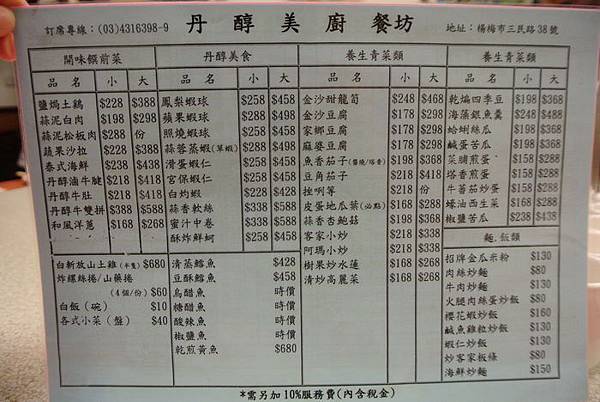 訂席專線：(03)4316398-9 丹醇美廚餐坊 地址：楊梅市三民路38號
開味饌前菜
品名 小 大
鹽焗土鷄 $228 $388
蒜泥白肉 $198 $298
蒜泥松板肉 $288 份
蔬果沙拉 $228 $388
泰式海鮮 $238 $438
丹醇滷牛腱 $218 $418
丹醇牛肚 $218 $418
丹醇牛雙拼 $388 $588
和風洋蔥 $168 $268
白斬放山土雞(半隻) $680
炸螺絲捲/山藥捲
(4個/份) $60
白飯(碗) $10
各式小菜(盤) $40
丹醇美食
品名 小 大
鳳梨蝦球 $258 $458
蘋果蝦球 $288 $498
照燒蝦球 $258 $458
蒜蓉蒸蝦(草蝦) $288 $498
滑蛋蝦仁 $258 $458
宮保蝦仁 $258 $458
白灼蝦 $228 $428
蒜香軟絲 $338 $588
蜜汁中卷 $338 $588
酥炸鮮蚵 $258 $458
清蒸鱈魚 $428
豆酥鱈魚 $458
烏醋魚 時價
糖醋魚 時價
酸辣魚 時價
椒鹽魚 時價
乾煎黃魚 $680
養生青菜類
品名 小 大
金沙甜龍筍 $248 $468
金沙豆腐 $178 $298
家鄉豆腐 $178 $298
麻婆豆腐 $178 $298
魚香茄子(醬燒/塔香) $218 $418
豆角茄子 $218 $418
挫咧等 $218 份
皮蛋地瓜葉(必點) $168 $288
蒜香杏鮑菇 $198 $368
客家小炒 $218 $338
阿瑪小炒 $218 $338
樹果炒水蓮 $168 $268
清炒高麗菜 $168 $268
養生青菜類
品名 小 大
乾煸四季豆 $198 $368
海藻銀魚羹 $248 $488
蛤蜊絲瓜 $198 $368
鹹蛋苦瓜 $198 $368
菜脯煎蛋 $158 $288
塔香煎蛋 $158 $288
牛蕃茄炒蛋 $158 $288
蠔油西生菜 $168 $288
椒鹽苦瓜 $238 $438
麵.飯類
招牌金瓜米粉 $130
肉絲炒麵 $80
牛肉炒麵 $130
火腿肉絲蛋炒飯 $80
櫻花蝦炒飯 $160
鹹魚雞粒炒飯 $130
蝦仁炒飯 $130
炒客家板條 $80
海鮮炒麵 $150
*需另加10%服務費(內含稅金)